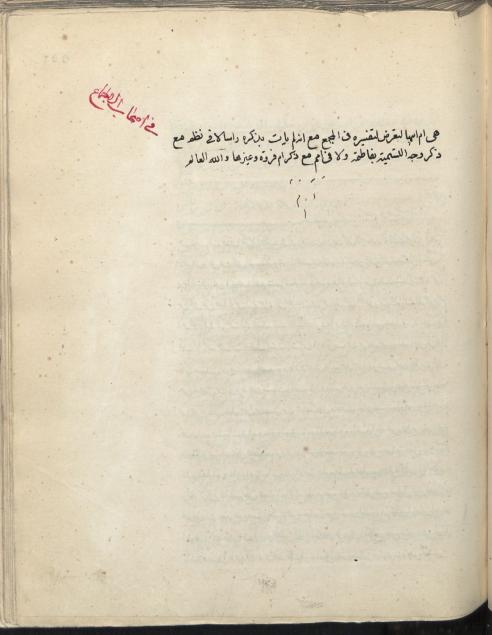 في اصحاب الاجماع
هى ام ابيها لم يتعرض لتفسيره فى المجمع مع انه لم يات بذكره راسا لا فى نظر مع
ذكر وجه التسمية بفاطمة ولا فى ام مع ذكر ام فروة وغيرها والله العالم